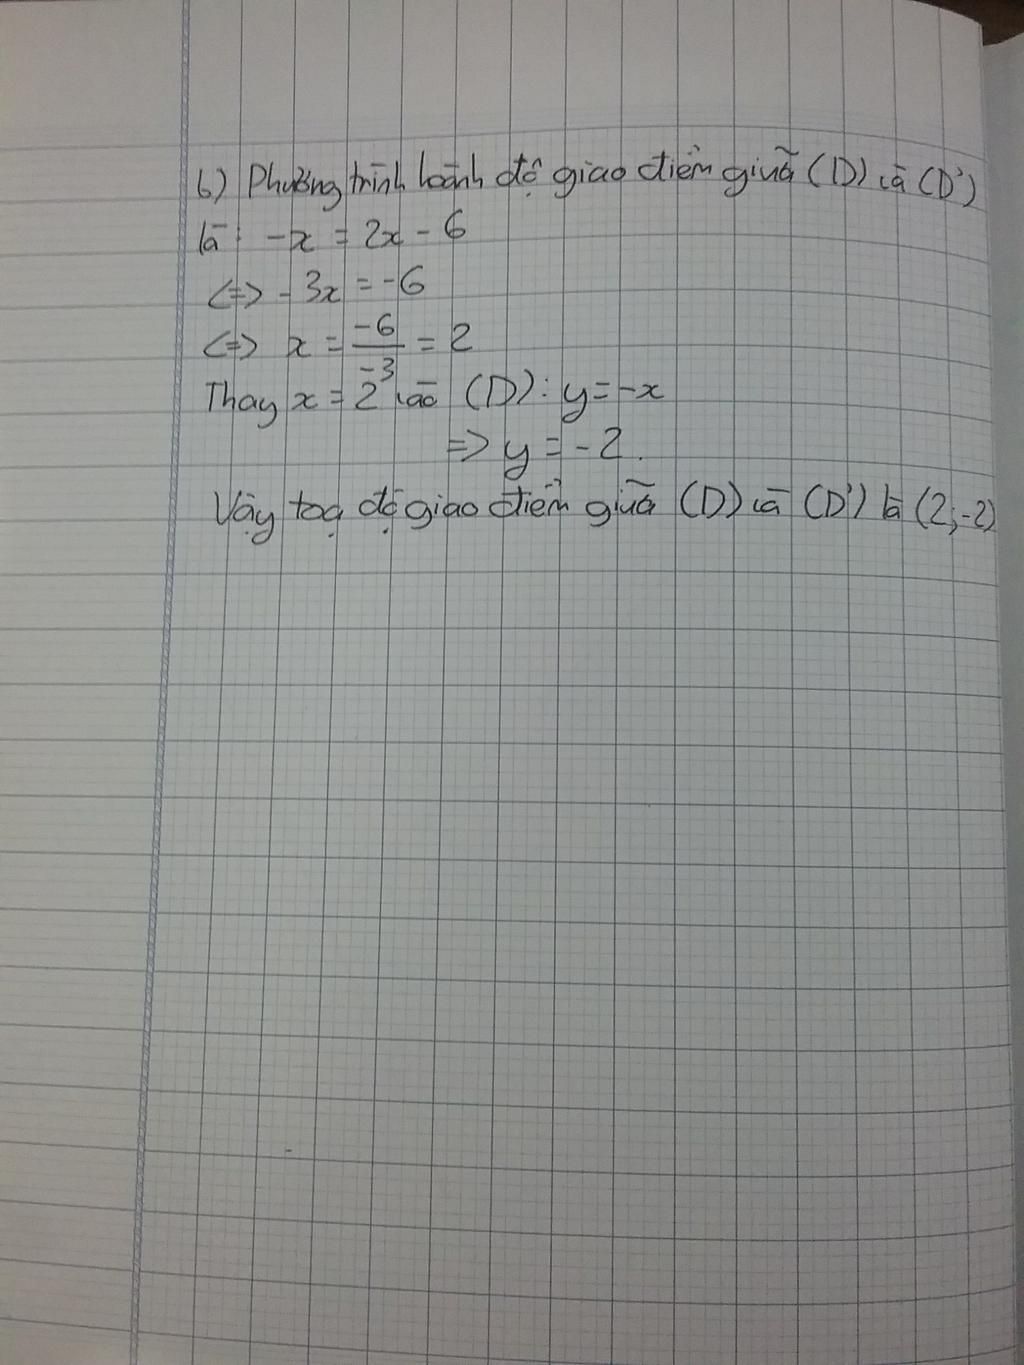 b) Phương trình hoành độ giao điểm giữa (D) và (D')
là: -x = 2x - 6
<=> -3x = -6
<=> x = \frac{-6}{-3} = 2
Thay x = 2 vào (D): y = -x
=> y = -2.
Vậy toạ độ giao điểm giữa (D) và (D') là (2;-2)